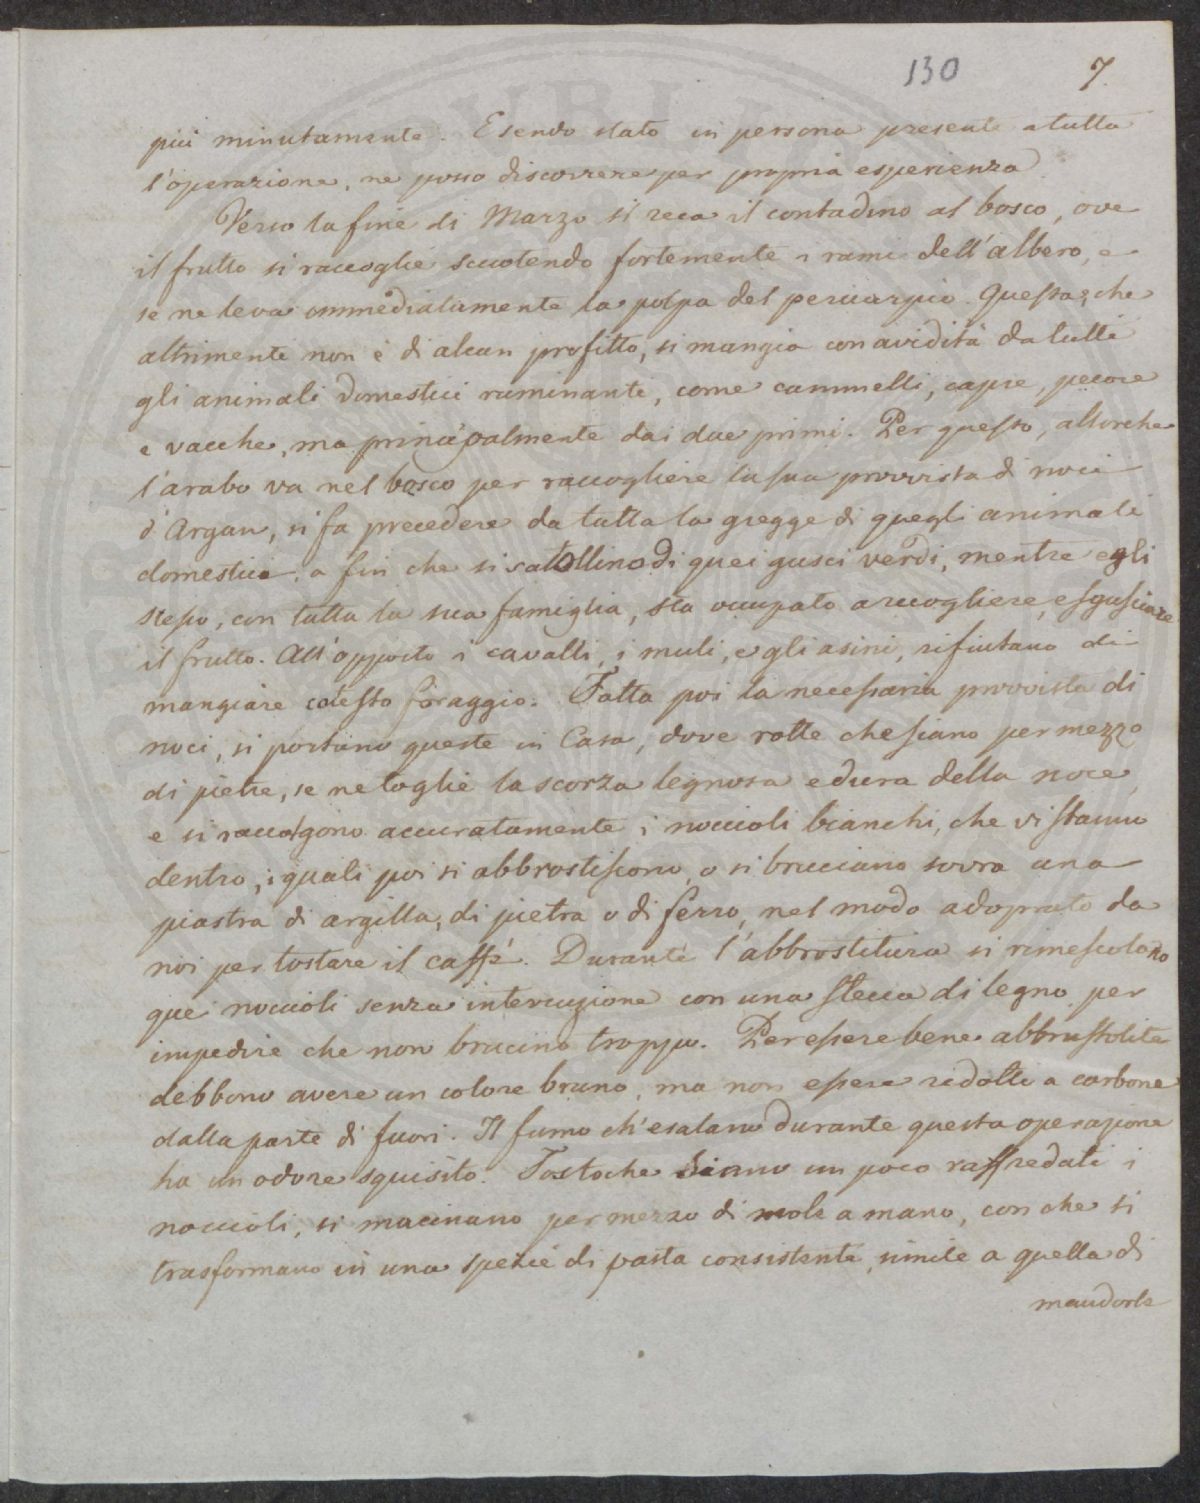 130 7.
più minutamente. Esendo stato in persona presente a tutta
l'operazione, ne posso discorrere per propria esperienza.
Verso la fine di Marzo si reca il contadino al bosco, ove
il frutto si raccoglie scuotendo fortemente i rami dell'albero, e
se ne leva immediatamente la polpa del pericarpio. Questa, che
altrimenti non è di alcun profitto, si mangia con avidità da tutti
gli animali domestici ruminanti, come cammelli, capre, pecore
e vacche, ma principalmente dai due primi. Per questo, allorche
l'arabo va nel bosco per raccogliere la sua provvista di noci
d'Argan, si fa precedere da tutta la gregge di quegli animali
domestici, a fin che si satollino di quei gusci verdi, mentre egli
stesso, con tutta la sua famiglia, sta occupato a accogliere, e sgusciare
il frutto. All'opposto i cavalli, i muli, e gli asini, rifiutano di
mangiare cotesto foraggio. Fatta poi la necessaria provvista di
noci, si portano queste in Casa, dove rotte che siano per mezzo
di pietre, se ne toglie la scorza legnosa e dura della noce,
e si raccolgono accuratamente i noccioli bianchi, che vi stanno
dentro, i quali poi si abbrostiscono, o si bruciano sovra una
piastra di argilla, di pietra o di ferro, nel modo adoprato da
noi per tostare il caffè. Durante l'abbrostitura si rimescolano
quei noccioli senza interruzione con una stecca di legno per
impedire che non brucino troppo. Per essere bene abbrustolite
debbono avere un colore bruno, ma non essere ridotti a carbone
dalla parte di fuori. Il fumo ch'esalano durante questa operazione
ha un odore squisito. Tostoche siano un poco raffredati i
noccioli, si macinano per mezzo di mole a mano, con che si
trasformano in una spezie di pasta consistente, simile a quella di
mandorle